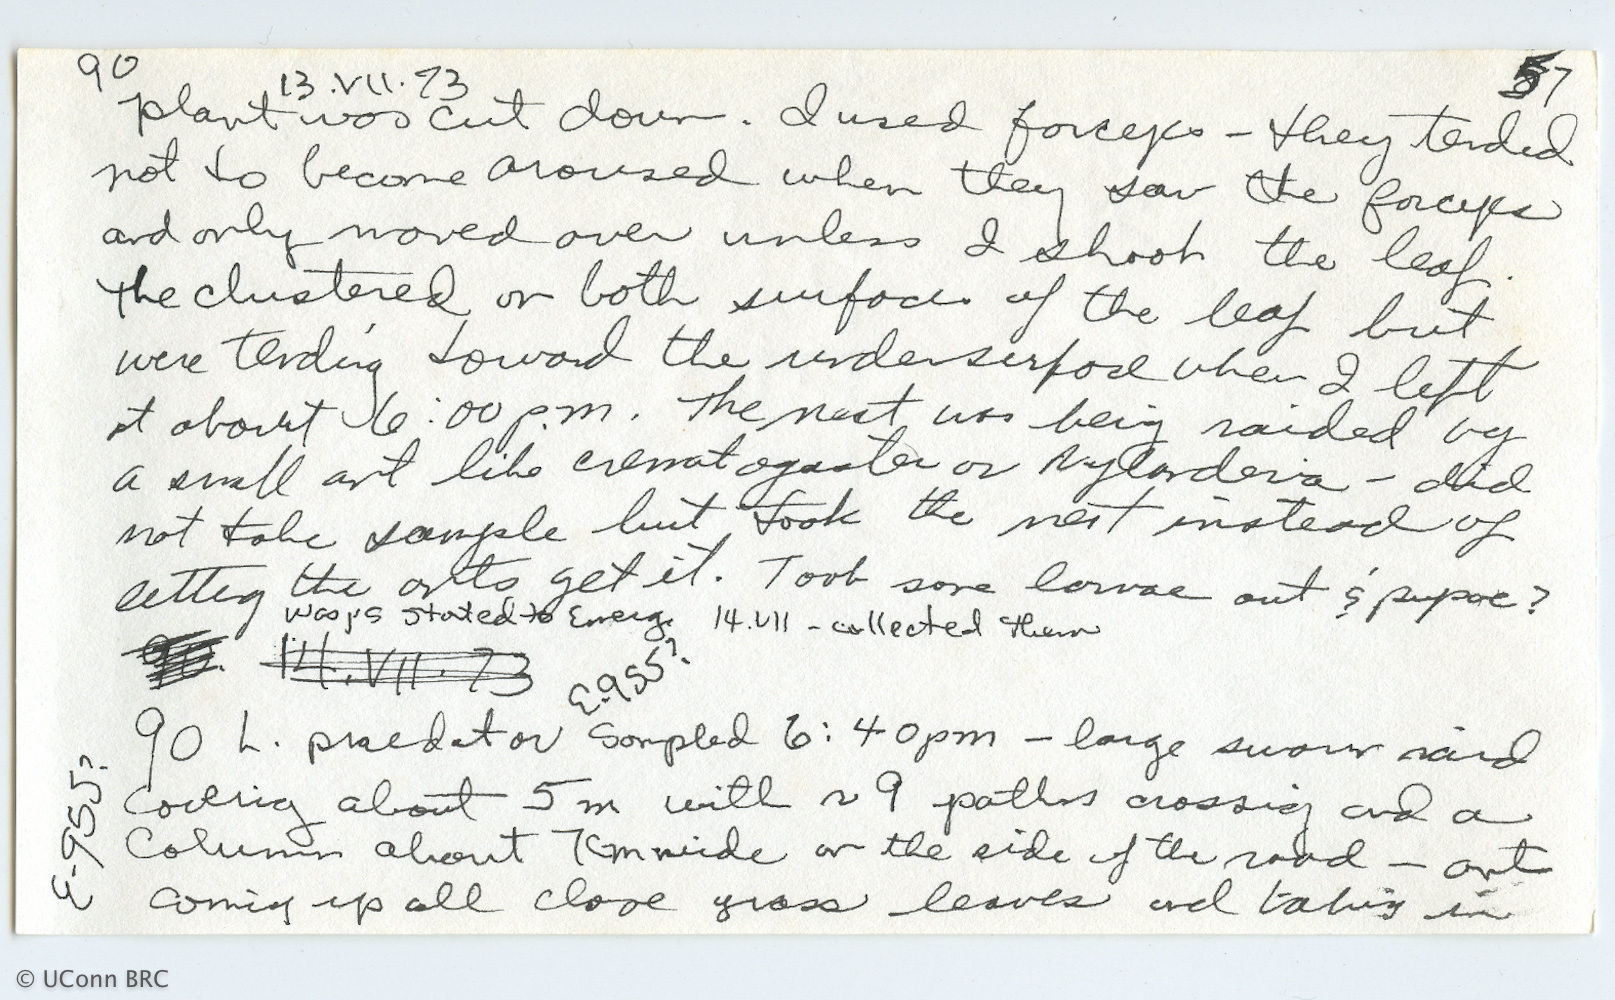 90
13.VII.73
57
plant was cut down. I used forceps - they tended
not to become aroused when they saw the forceps
and only moved over unless I shook the leaf.
the clustered on both surfaces of the leaf but
were tending toward the undersurface when I left
at about 6:00 p.m. The nest was being raided by
a small ant like crematogaster or Nylanderia - did
not take sample but took the nest instead of
letting the ants get it. Took some larvae out & pupae?
wasps started to Emerge 14.VII - collected them
14.VII.73
E-955?
90 L. praedator sampled 6:40pm - large swarm raid
covering about 5m with ~ 9 paths crossing and a
column about 7cm wide on the side of the road - ants
coming up all close grass leaves and taking in
E-955?
© UConn BRC